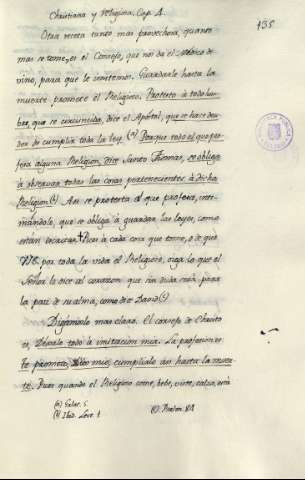 Christiana y Religiosa. Cap. 4.
135
Otra receta tanto mas provechosa, quanto
mas se tome, es el Consejo, que nos da el Medico di-
vino, para que le imitemos. Guardarle hasta la
muerte promete el Religioso. Protesto à todo hom-
bre, que se circuncida, dice el Apostol, que se hace deu-
dor de cumplir toda la ley. (a) Porque todo el que pro-
fesa alguna Religion, dice Santo Thomas, se obliga
à observar todas las cosas pertenecientes à dicha
Religion. (b) Asi se protesta el que profesa,
que se obliga à guardar las leyes, como
estan escritas. Pues à cada cosa que tome, o de que
use por toda la vida el Religioso, oiga lo que el
Señor le dice al corazon que sin duda será para
la paz de su alma, como dice David (c)
Digamoslo mas claro. El consejo de Christo
es, Dejalo todo è imitacion mia. La profesion es
Yo prometo, Dios mio, cumplirlo asi hasta la muer-
te. Pues quando el Religioso come, bebe, viste, calza, està
(a) Galat. 5.
(b) Ibid. Lect. 1
(c) Psalm. 84